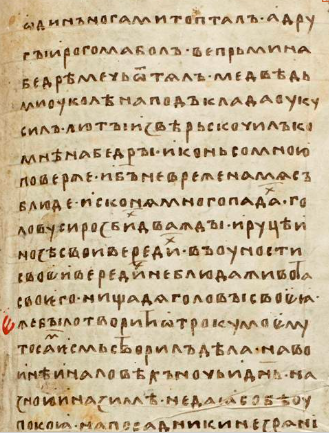 ѡдинъногамитопталъ·адру
гъıирогомаболъ·вепрьмина
бедрѣмечьѿтѧлъ·медвѣдь
миоуколѣнаподъкладаоуку
силъ·лютъıизвѣрьскочилъко
мнѣнабедръı·иконьсомною
поверже·ибъневреженамѧсъ
блюде·исконѧмногопада·го
ловусиросбидваждъı·ируцѣи
нозѣсвоивереди·въоуности
своѥиверединеблюдаживота
своѥго·нищадѧголовъısвоѥꙗ·
ѥжебъıлотворитиѡтрокумоѥму
тосамѥсмьстворилъдѣла·наво
инѣиналовѣхъночьидн҃ь·на
зноииназимѣ·недаꙗсобѣоу
покоꙗ·напосадникинезрѧни